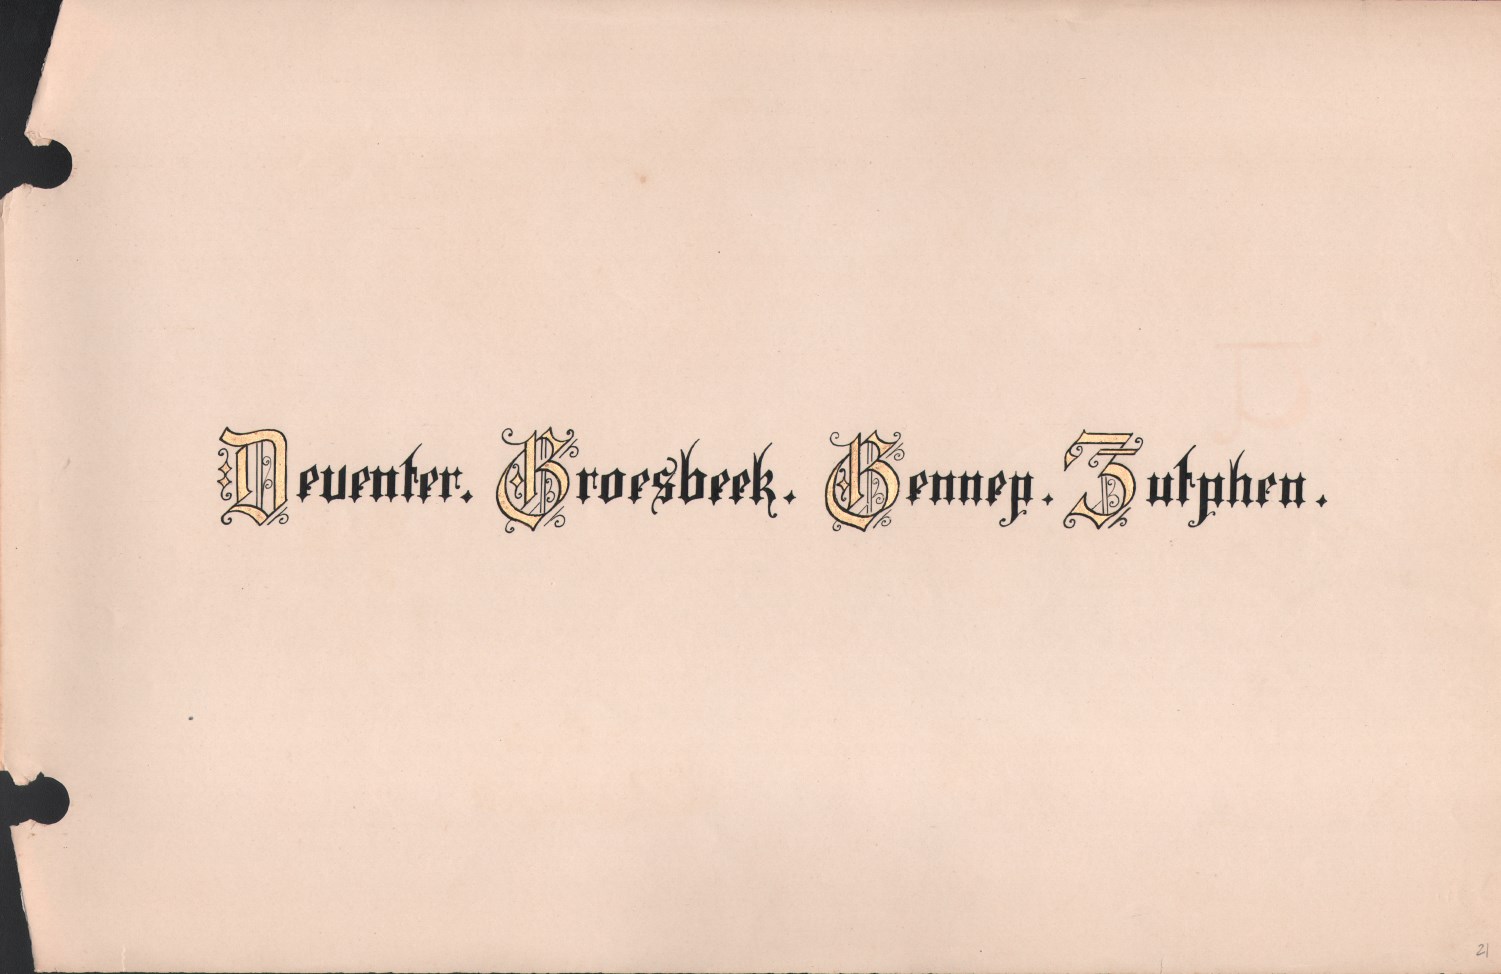 Deventer. Groesbeek. Gennep. Zutphen.
21